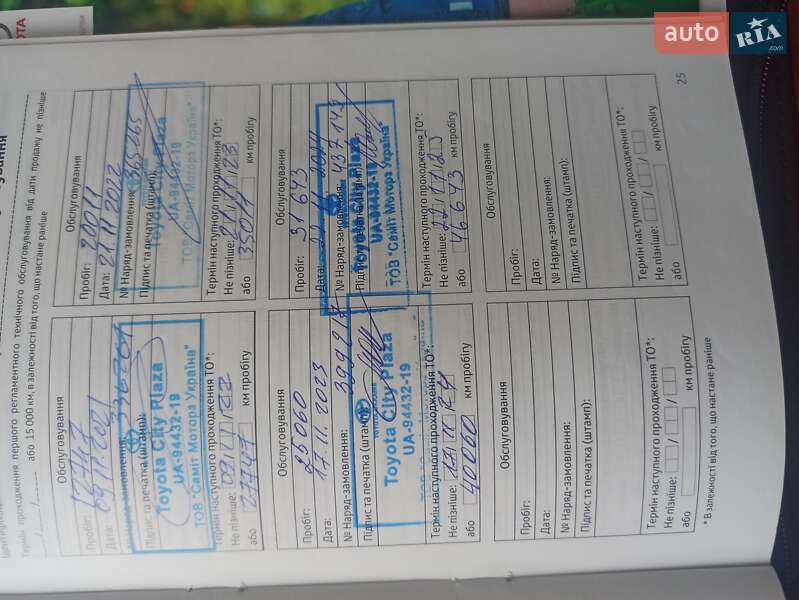 auto RIA.com
Термін проходження першого регламентного технічного обслуговування від дати продажу не пізніше
або 15 000 км, в залежності від того, що настане раніше
Обслуговування
Дата: 09.11.2021
Підпис та печатка (штамп):
Toyota City Plaza
UA-94432-19
ТОВ "Саміт Мотора Україна"
Термін наступного проходження ТО*:
Не пізніше:
або км пробігу
Обслуговування
Пробіг: 20011
Дата: 21.11.2022
№ Наряд-замовлення: 365265
Підпис та печатка (штамп):
Toyota City Plaza
UA-94432-19
ТОВ "Саміт Мотора Україна"
Термін наступного проходження ТО*:
Не пізніше: 21/11/23
або 35011 км пробігу
Обслуговування
Пробіг: 25060
Дата: 17.11.2023
№ Наряд-замовлення:
Підпис та печатка (штамп):
Toyota City Plaza
UA-94432-19
Термін наступного проходження ТО*:
Не пізніше:
або 40060 км пробігу
Обслуговування
Пробіг: 31 643
Дата:
№ Наряд-замовлення:
Toyota City Plaza
UA-94432-19
ТОВ "Саміт Мотора Україна"
Термін наступного проходження ТО*:
Не пізніше:
або 46643 км пробігу
Обслуговування
Пробіг:
Дата:
№ Наряд-замовлення:
Підпис та печатка (штамп):
Термін наступного проходження ТО*:
Не пізніше: / /
або км пробігу
Обслуговування
Пробіг:
Дата:
№ Наряд-замовлення:
Підпис та печатка (штамп):
Термін наступного проходження ТО*:
Не пізніше: / /
або км пробігу
* В залежності від того, що настане раніше
25